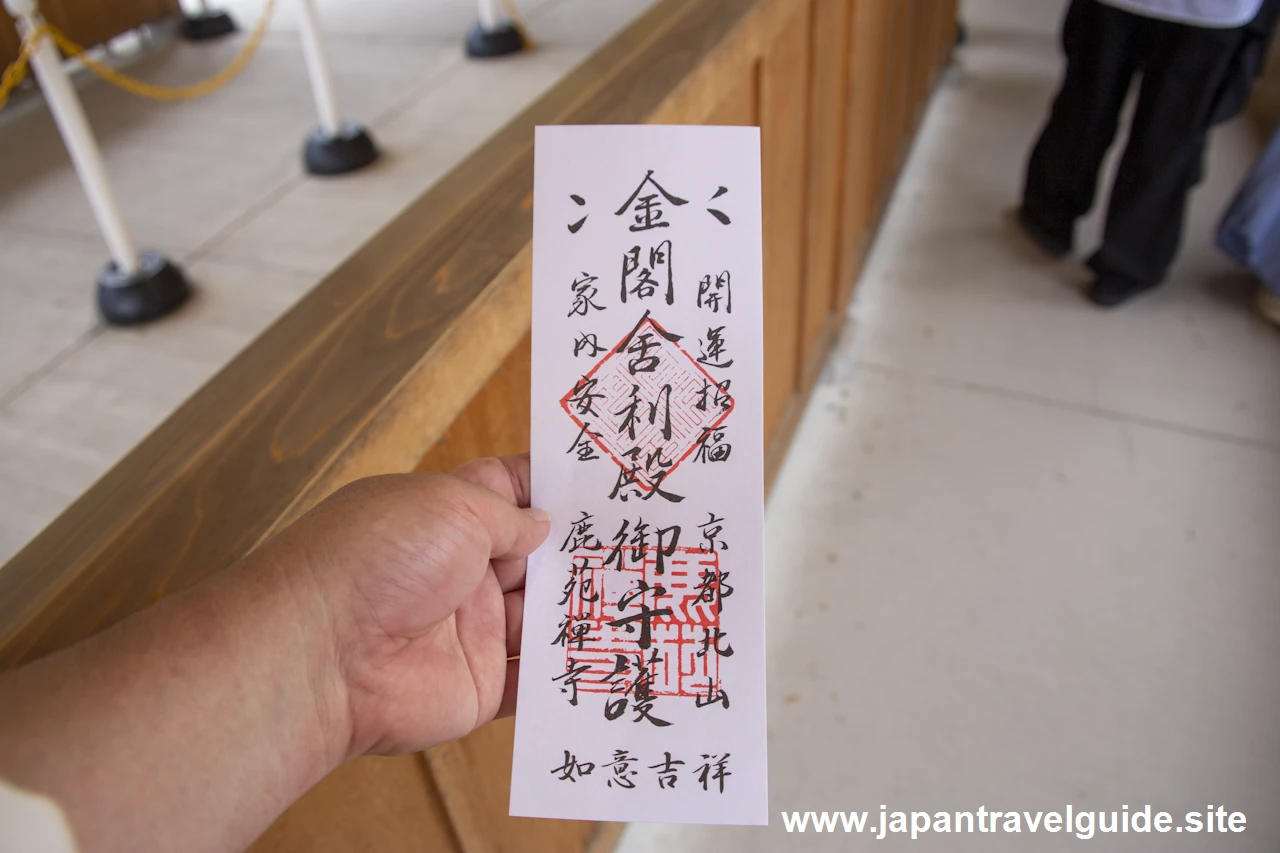 開運招福
京都北山
金閣舎利殿
御守護
家内安全
鹿苑禅寺
如意吉祥
www.japantravelguide.site